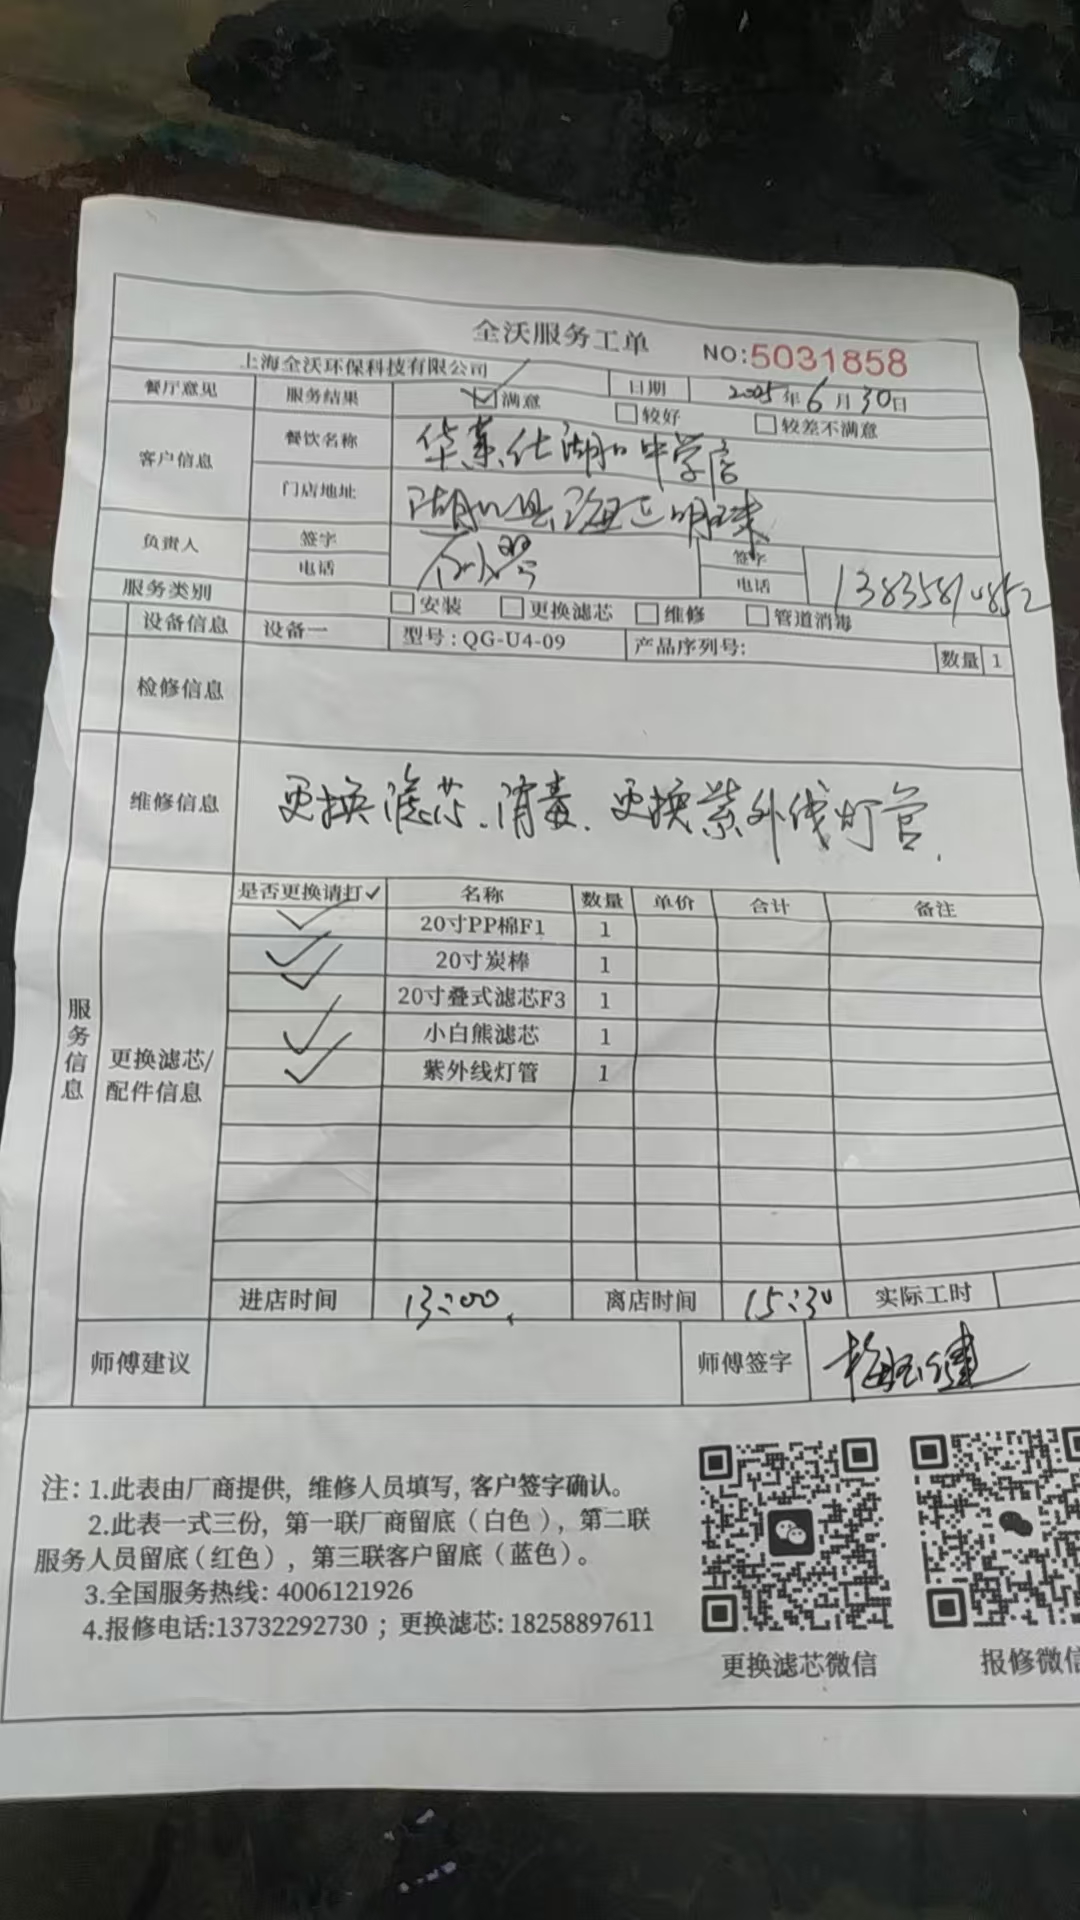 全沃服务工单 NO:5031858
上海全沃环保科技有限公司 日期 2025年6月30日
餐厅意见 服务结果 满意 较好 较差不满意
客户信息 餐饮名称 华莱仕湖口中学店
门店地址 湖口县海正明珠
负责人 签字 签字
电话 电话
服务类别 安装 更换滤芯 维修 管道消毒
设备信息 设备一 型号:QG-U4-09 产品序列号: 数量 1
检修信息
维修信息 更换滤芯、消毒、更换紫外线灯管.
服务信息
更换滤芯/配件信息
是否更换请打✓ 名称 数量 单价 合计 备注
✓ 20寸PP棉F1 1
✓ 20寸炭棒 1
✓ 20寸叠式滤芯F3 1
✓ 小白熊滤芯 1
✓ 紫外线灯管 1
进店时间 13:00 离店时间 15:30 实际工时
师傅建议 师傅签字
注: 1.此表由厂商提供, 维修人员填写, 客户签字确认。
2.此表一式三份, 第一联厂商留底(白色), 第二联
服务人员留底(红色), 第三联客户留底(蓝色)。
3.全国服务热线: 4006121926
4.报修电话:13732292730 ; 更换滤芯: 18258897611
更换滤芯微信 报修微信